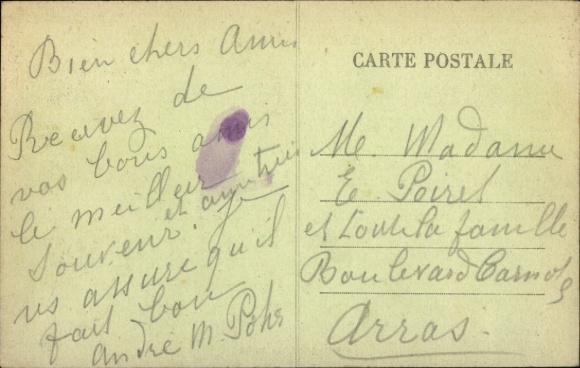 Bien chers Amis
Recevez de
vos bons amis
le meilleur
et amitiés
Souvenir. Je
vs assure qu'il
fait bon
André M. Pohr
CARTE POSTALE
M. Madame
E. Poiret
et toute la famille
Boulevard Carnot
Arras.